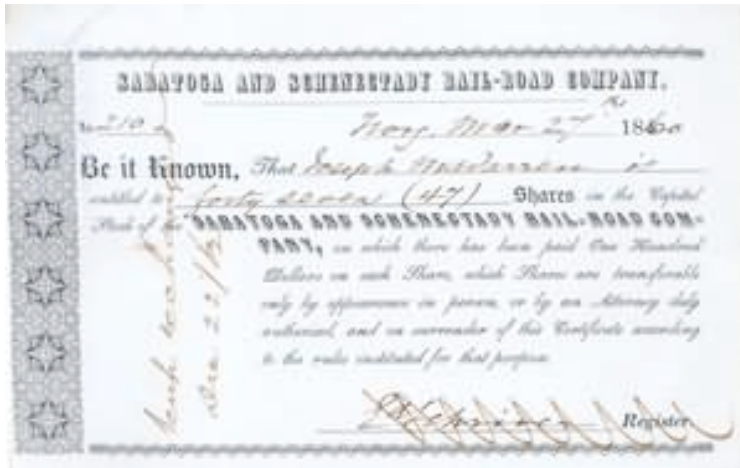 SARATOGA AND SCHENECTADY RAIL-ROAD COMPANY.
No 210 Troy, Mar 27th 1860
Be it Known, That Joseph M. Warren is
entitled to forty seven (47) Shares in the Capital
Stock of the "SARATOGA AND SCHENECTADY RAIL-ROAD COM-
PANY, on which there has been paid One Hundred
Dollars on each Share, which Shares are transferable
only by appearance in person, or by an Attorney duly
authorized, and on surrender of this Certificate according
to the rules instituted for that purpose.
Register.
Dec 22/